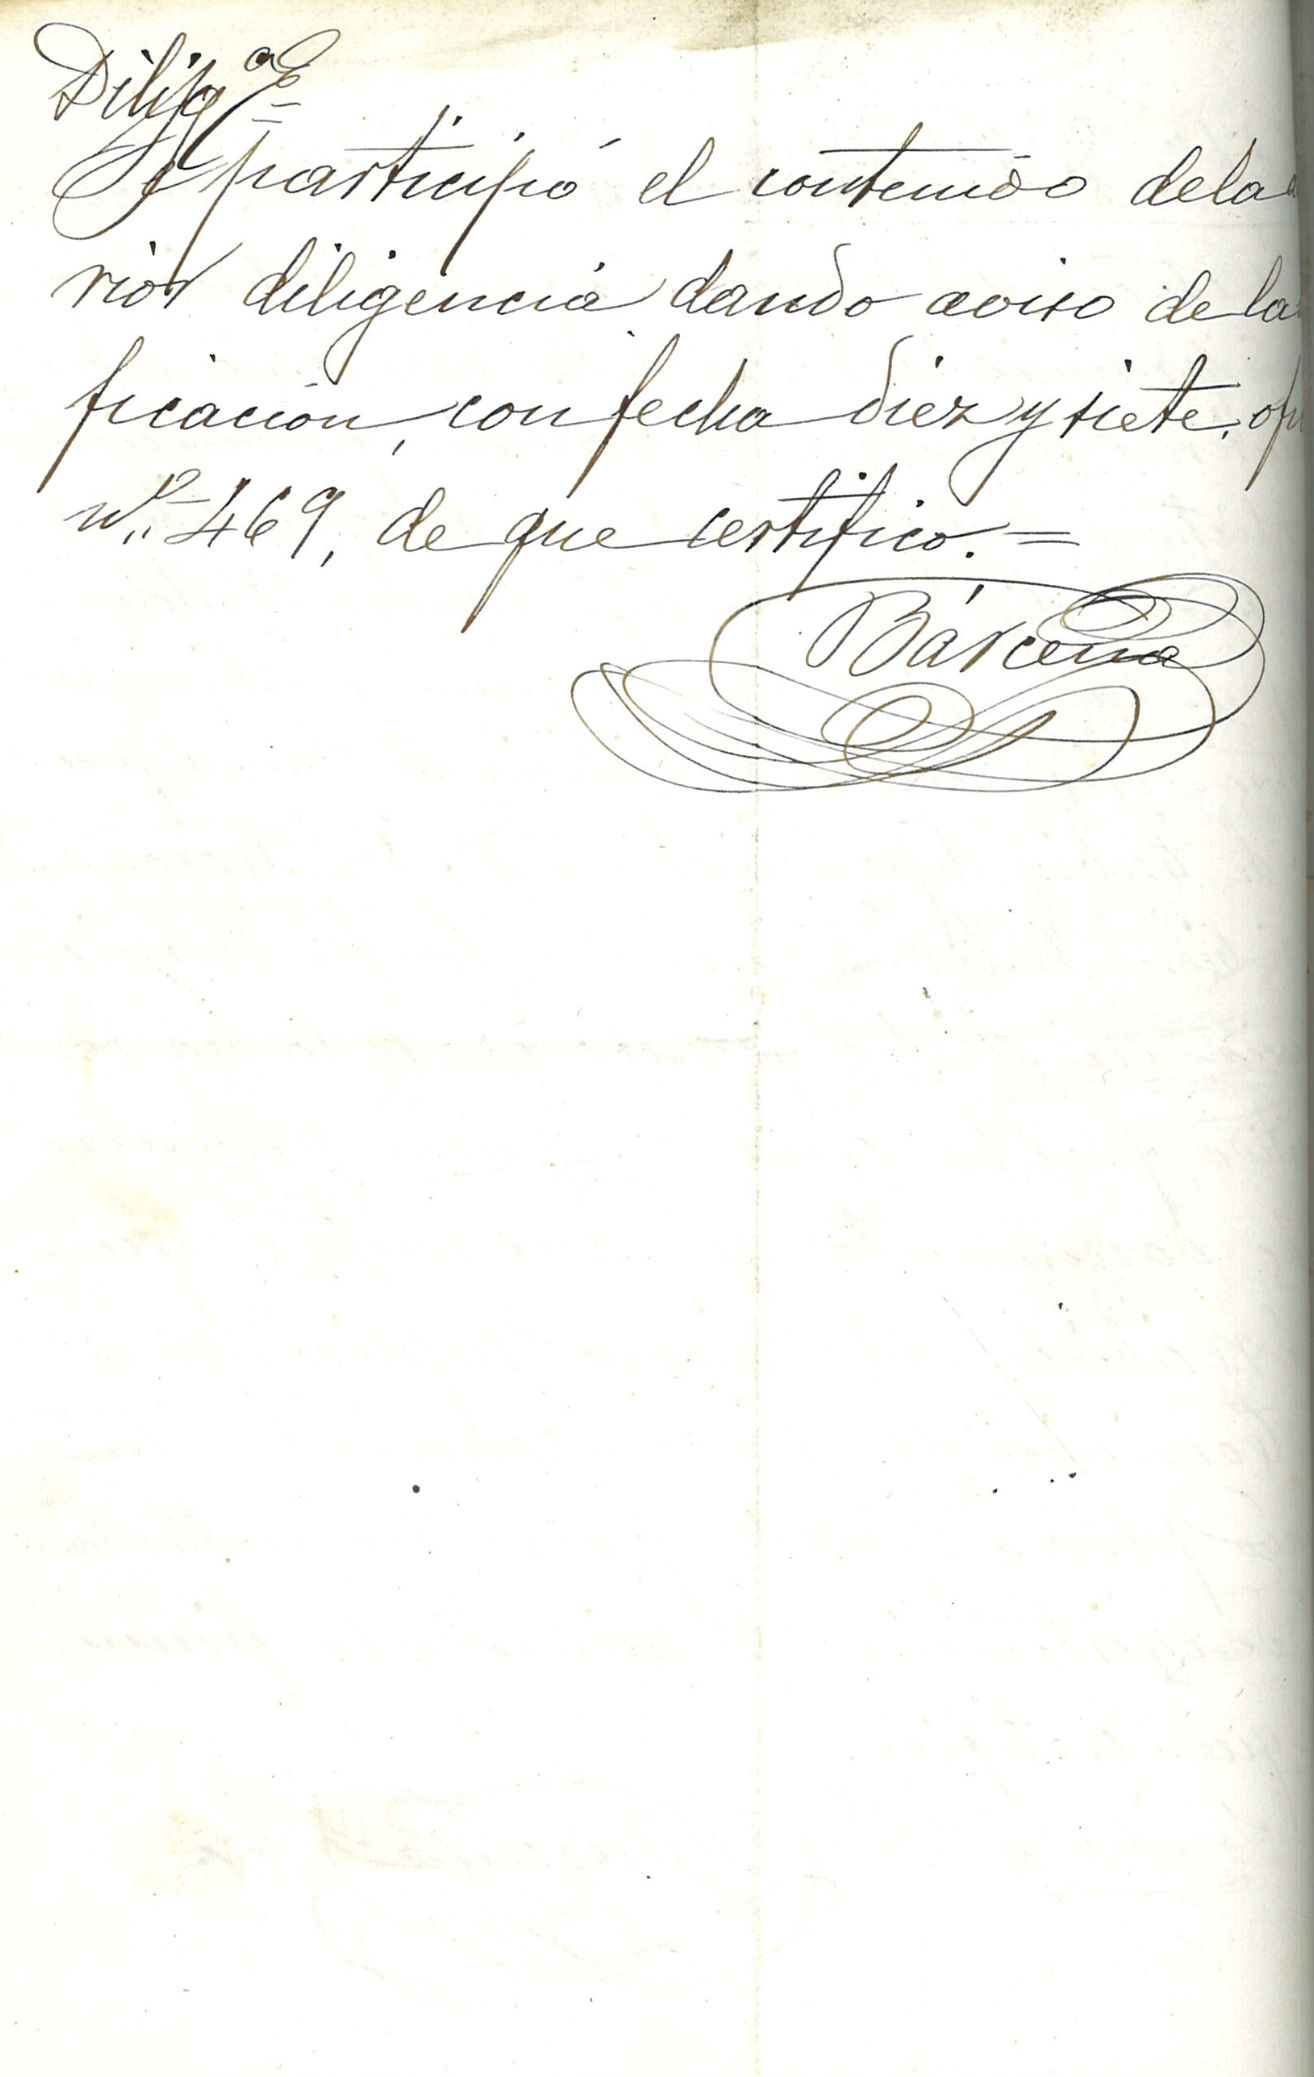 Dilig.ª =
Se participó el contenido dela a
rior diligencia dando aviso de la
ficación, con fecha diez y siete, ofi
nº 469, de que certifico. =
Bárcena